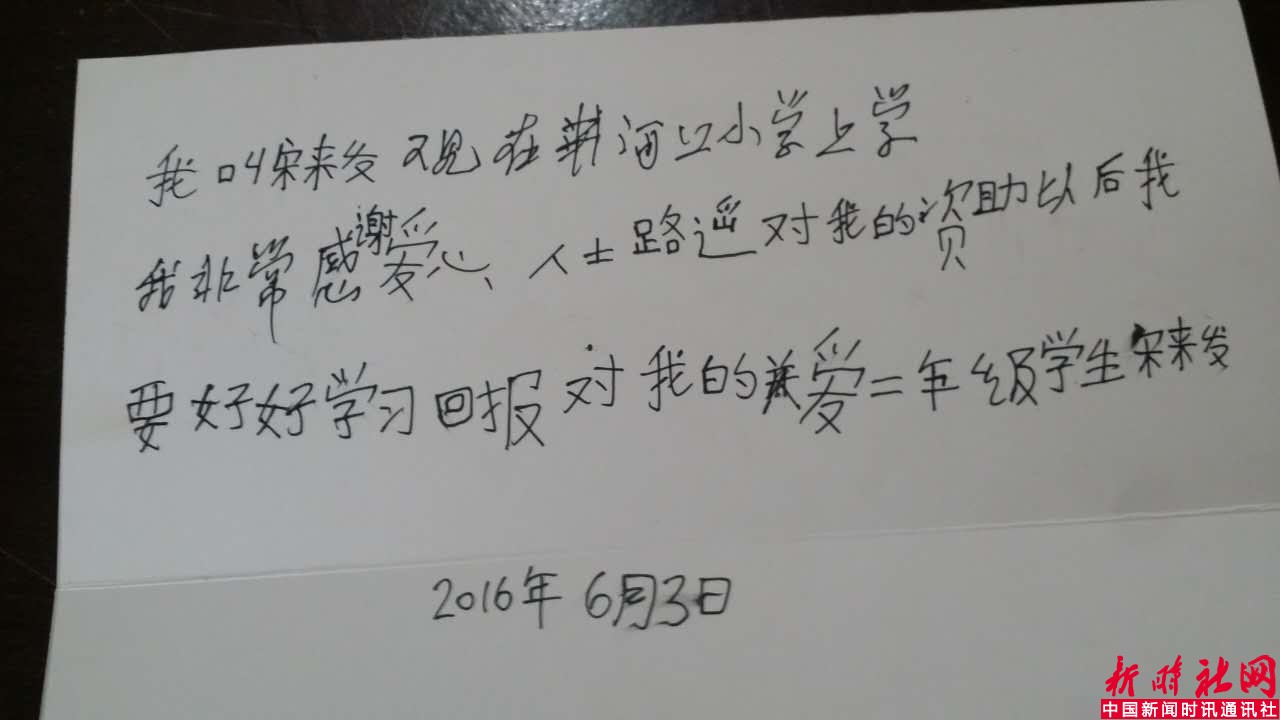 我叫宋来发现在荆河口小学上学
我非常感谢爱心、人士路遥对我的资助以后我
要好好学习回报对我的关爱二年级学生宋来发
2016年6月3日
新时社网
中国新闻时讯通讯社